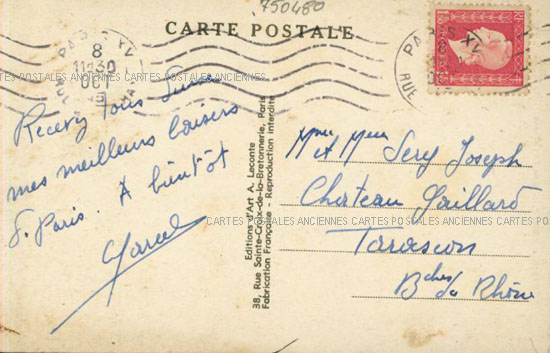 750480
CARTE POSTALE
PARIS XV
8
11H30
OCT
RUE
CARTES POSTALES ANCIENNES CARTES POSTALES ANCIENNES
Recevez tous
mes meilleurs baisers
de Paris. À bientôt
Marcel
Editions d'Art A. Leconte
38, Rue Sainte-Croix-de-la-Bretonnerie, Paris
Fabrication Française - Reproduction interdite
PARIS XV
8
OCT
RUE
Mme et Mr Sery Joseph
Chateau Gaillard
CARTES POSTALES ANCIENNES CARTES POSTALES ANCIENNES
Tarascon
Bches du Rhône